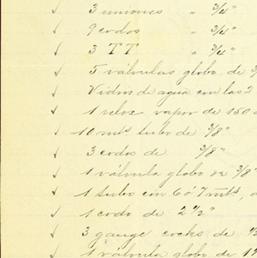 ✓ 3 uniones " 3/4"
✓ 9 codos " 3/4"
✓ 3 T T " 3/4"
✓ 5 válvulas globo de 3/
✓ Vidros de agua con las 2
✓ 1 reloz vapor de 150
✓ 10 mts tubo de 3/8"
✓ 3 codos de 3/8"
✓ 1 válvula globo de 3/8"
✓ 1 tubo con 6 ó 7 mts,
✓ 1 codo de 2 1/2
✓ 3 gauge cocks de
✓ 1 válvula globo de 1